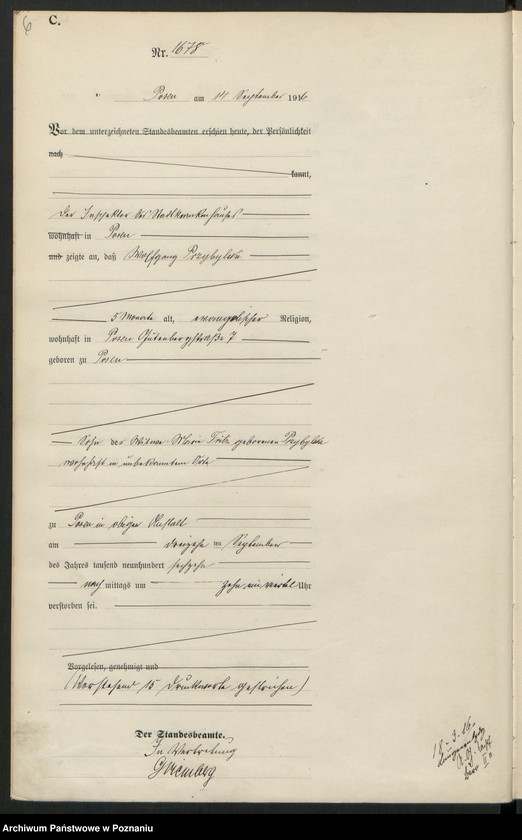 6
C.
Nr. 1678
Posen am 14 September 1916
Vor dem unterzeichneten Standesbeamten erschien heute, der Persönlichkeit
nach
kannt,
Der Inspektor des Stadtkrankenhauses
wohnhaft in Posen
und zeigte an, daß Wolfgang Przybylski
5 Monate alt, evangelischer Religion,
wohnhaft in Posen Gutenbergstraße 7
geboren zu Posen
Sohn der Witwe Marie Fritz geborenen
wohnhaft in unbekanntem Orte
zu Posen in obiger Anstalt
am dreizehn ten September
des Jahres tausend neunhundert sechzehn
nach mittags um zehn ein viertel Uhr
verstorben sei.
Vorgelesen, genehmigt und
(Vorstehend 15 Druckworte gestrichen)
Der Standesbeamte.
In Vertretung
Archiwum Państwowe w Poznaniu